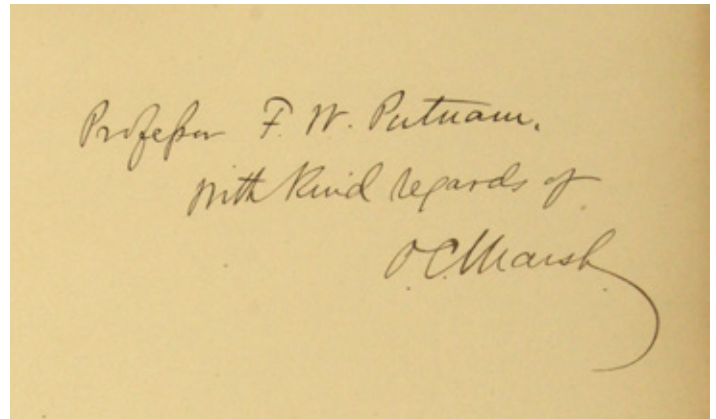 Professor F. W. Putnam.
with kind regards of
O. C. Marsh